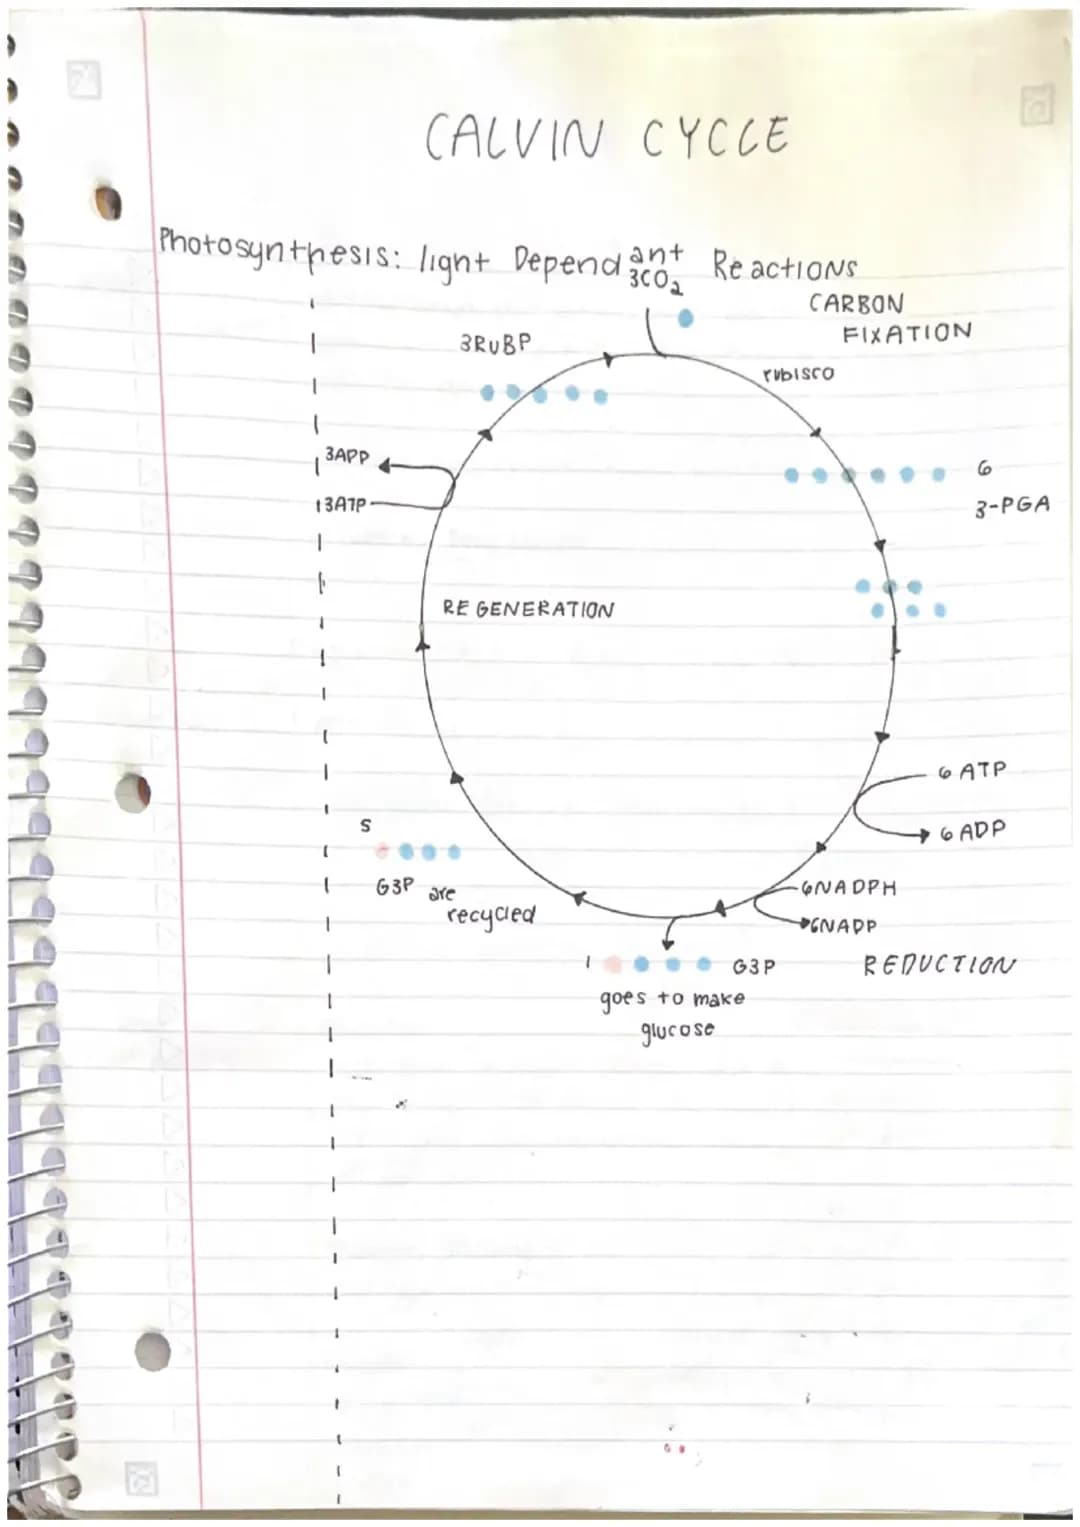 CALVIN CYCLE
Photosynthesis: light Dependant Reactions
3CO2
CARBON
FIXATION
3RUBP
rubisco
3APP
3ATP
6
3-PGA
REGENERATION
6 ATP
6 ADP
5
G3P are
recycled
6NADPH
6NADP
1
G3P
REDUCTION
goes to make
glucose